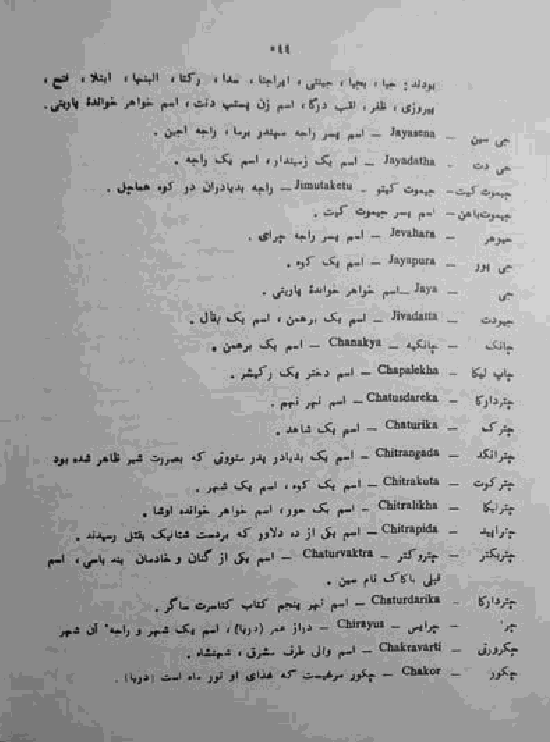 ۵۹۹
بودند: جیا، بجیا، جینتی، اپراجتا، سدا، رکتا، البنها، ابتلا، فتح،
پیروزی، ظفر، لقب درگا، اسم زن پسپ دنت، اسم خواهر خواندهٔ پاربتی.
جی سین – Jayasena – اسم پسر راجه مهندر برما، راجه اجین.
جی دت – Jayadatha – اسم یک زمیندار، اسم یک راجه.
جیموت کیت – جیموت کیتو – Jimutaketu – راجه بدیادران دو کوه هماچل.
جیموت‌باهن – اسم پسر جیموت کیت.
جیوهر – Jevahara – اسم پسر راجه چرای.
جی پور – Jayapura – اسم یک کوه.
جی – Jaya – اسم خواهر خواندهٔ پاربتی.
جیودت – Jivadatta – اسم یک برهمن، اسم یک بقال.
چانک – چانکیه – Chanakya – اسم یک برهمن.
چاپ لیکا – Chapalekha – اسم دختر یک رکیشر.
چتردارکا – Chatusdareka – اسم نهر نهم.
چترک – Chaturika – اسم یک شاهد.
چترانگد – Chitrangada – اسم یک بدیادر پدر سنووتی که بصورت شیر ظاهر شده بود
چترکوت – Chitrakuta – اسم یک کوه، اسم یک شهر.
چترلیکا – Chitralikha – اسم یک حور، اسم خواهر خوانده اوشا.
چتراپید – Chitrapida – اسم یکی از ده دلاور که بردست شتانیک بقتل رسیدند.
چتربکتر – چتروکتر – Chaturvaktra – اسم یکی از گنان و خادمان بند باسی، اسم
قبلی باکاک نام سین.
چتردارکا – Chaturdarika – اسم نهر پنجم کتاب کتاسرت ساگر.
چر – چرایس – Chirayus – دراز عمر (دریا)، اسم یک شهر و راجهٔ آن شهر
چکرورتی – Chakravarti – اسم والی طرف مشرق، شهنشاه.
چکور – Chakor – چکور مرغیست که غذای او نور ماه است (دریا).